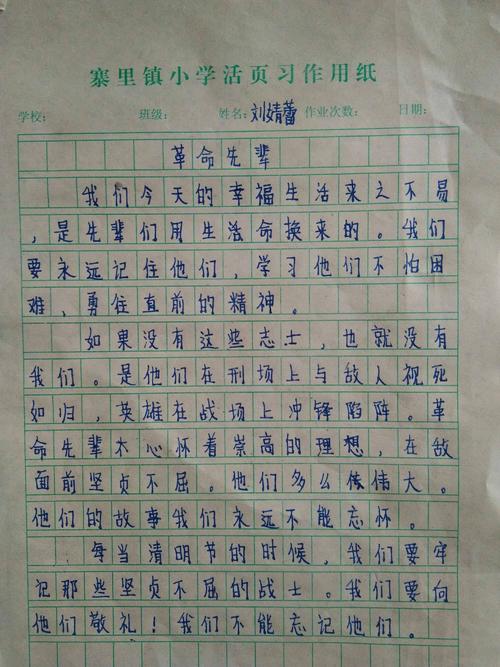 寨里镇小学活页习作用纸
学校： 班级： 姓名：刘婧蕾 作业次数： 日期：
革命先辈
我们今天的幸福生活来之不易
，是先辈们用生活命换来的。我们
要永远记住他们，学习他们不怕困
难，勇往直前的精神。
如果没有这些志士，也就没有
我们。是他们在刑场上与敌人视死
如归，英雄在战场上冲锋陷阵。革
命先辈心怀着崇高的理想，在敌
面前坚贞不屈。他们多么伟大。
他们的故事我们永远不能忘怀。
每当清明节的时候，我们要牢
记那些坚贞不屈的战士。我们要向
他们敬礼！我们不能忘记他们。